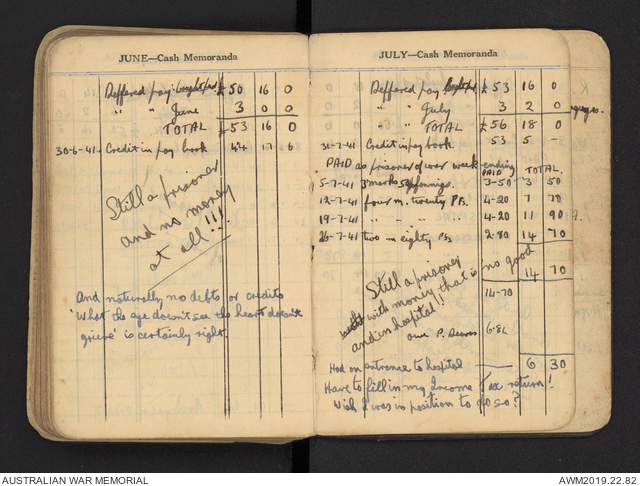 JUNE—Cash Memoranda
Deffered pay brought fwd £50 16 0
" " June 3 0 0
TOTAL £53 16 0
30-6-41. Credit in pay book 44 17 6
Still a prisoner
and no money
at all!!!
And naturally no debts or credits
'What the age doesn't see the heart doesn't
grieve' is certainly right.
JULY—Cash Memoranda
Deffered pay £53 16 0
" " July 3 2 0
" " TOTAL £56 18 0
31-7-41 Credit in pay book 53 5 -
PAID as prisoner of war week ending
PAID TOTAL.
5-7-41 3 marks 50 pfennigs. 3-50 3 50
12-7-41 four m. twenty Pfs. 4-20 7 70
19-7-41 " " " " 4-20 11 90
26-7-41 two m eighty Pfs. 2-80 14 70
14 70
Still a prisoner
with money that is no good
and in hospital!!
14-70
owe P. 6-82
Had on entrance to hospital — 6 30
Have to fill in my Income Tax return!
Wish I was in position to do so?
AUSTRALIAN WAR MEMORIAL
AWM2019.22.82